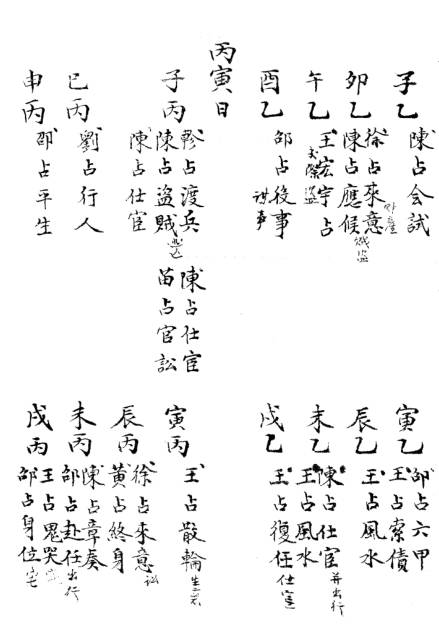 子乙
陳占会試
卯乙
徐占來意
陳占應候
午乙
王宏宇占
酉乙
邵占後事
丙寅日
子丙
軫占渡兵
陳占盜賊
陳占仕宦
陳占仕宦
苗占官訟
巳丙
劉占行人
申丙
邵占平生
寅乙
邵占六甲
王占索債
辰乙
王占風水
未乙
陳占仕宦 并出行
王占風水
戌乙
王占復任
寅丙
王占散輪
辰丙
徐占來意 訟
黃占終身
未丙
陳占章奏
邵占赴任 出行
戌丙
王占鬼哭
邵占身位 宅